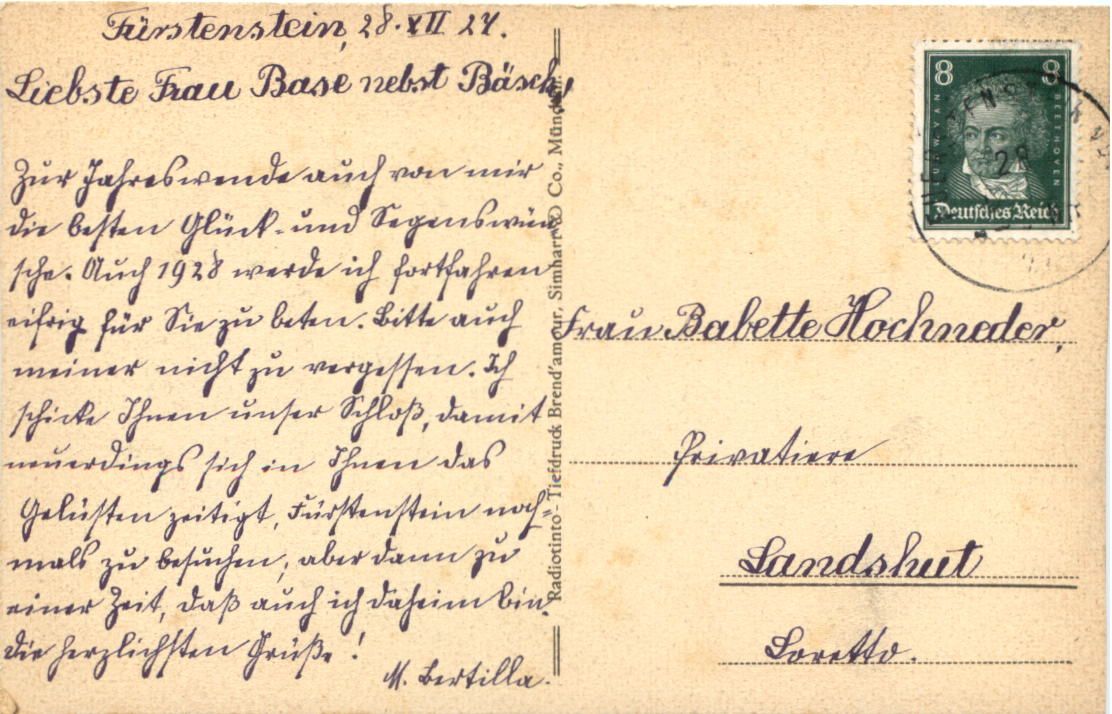 Fürstenstein, 28. XII 27.
Liebste Frau Base nebst Bäsch,
Zur Jahreswende auch von mir
die besten Glück- und Segenswün
sche. Auch 1928 werde ich fortfahren
eifrig für Sie zu beten. Bitte auch
meiner nicht zu vergessen. Ich
schicke Ihnen unser Schloß, damit
neuerdings sich in Ihnen das
Gelüsten zeitigt, Fürstenstein noch-
mals zu besuchen, aber dann zu
einer Zeit, daß auch ich daheim bin.
Die herzlichsten Grüße!
M. Bertilla.
Radiotinto-Tiefdruck Brend'amour, Simhart & Co., Münch
8 8
VAN
BEETHOVEN
Deutsches Reich
28
Frau Babette Hochneder,
Privatiere
Landshut
Loretto.